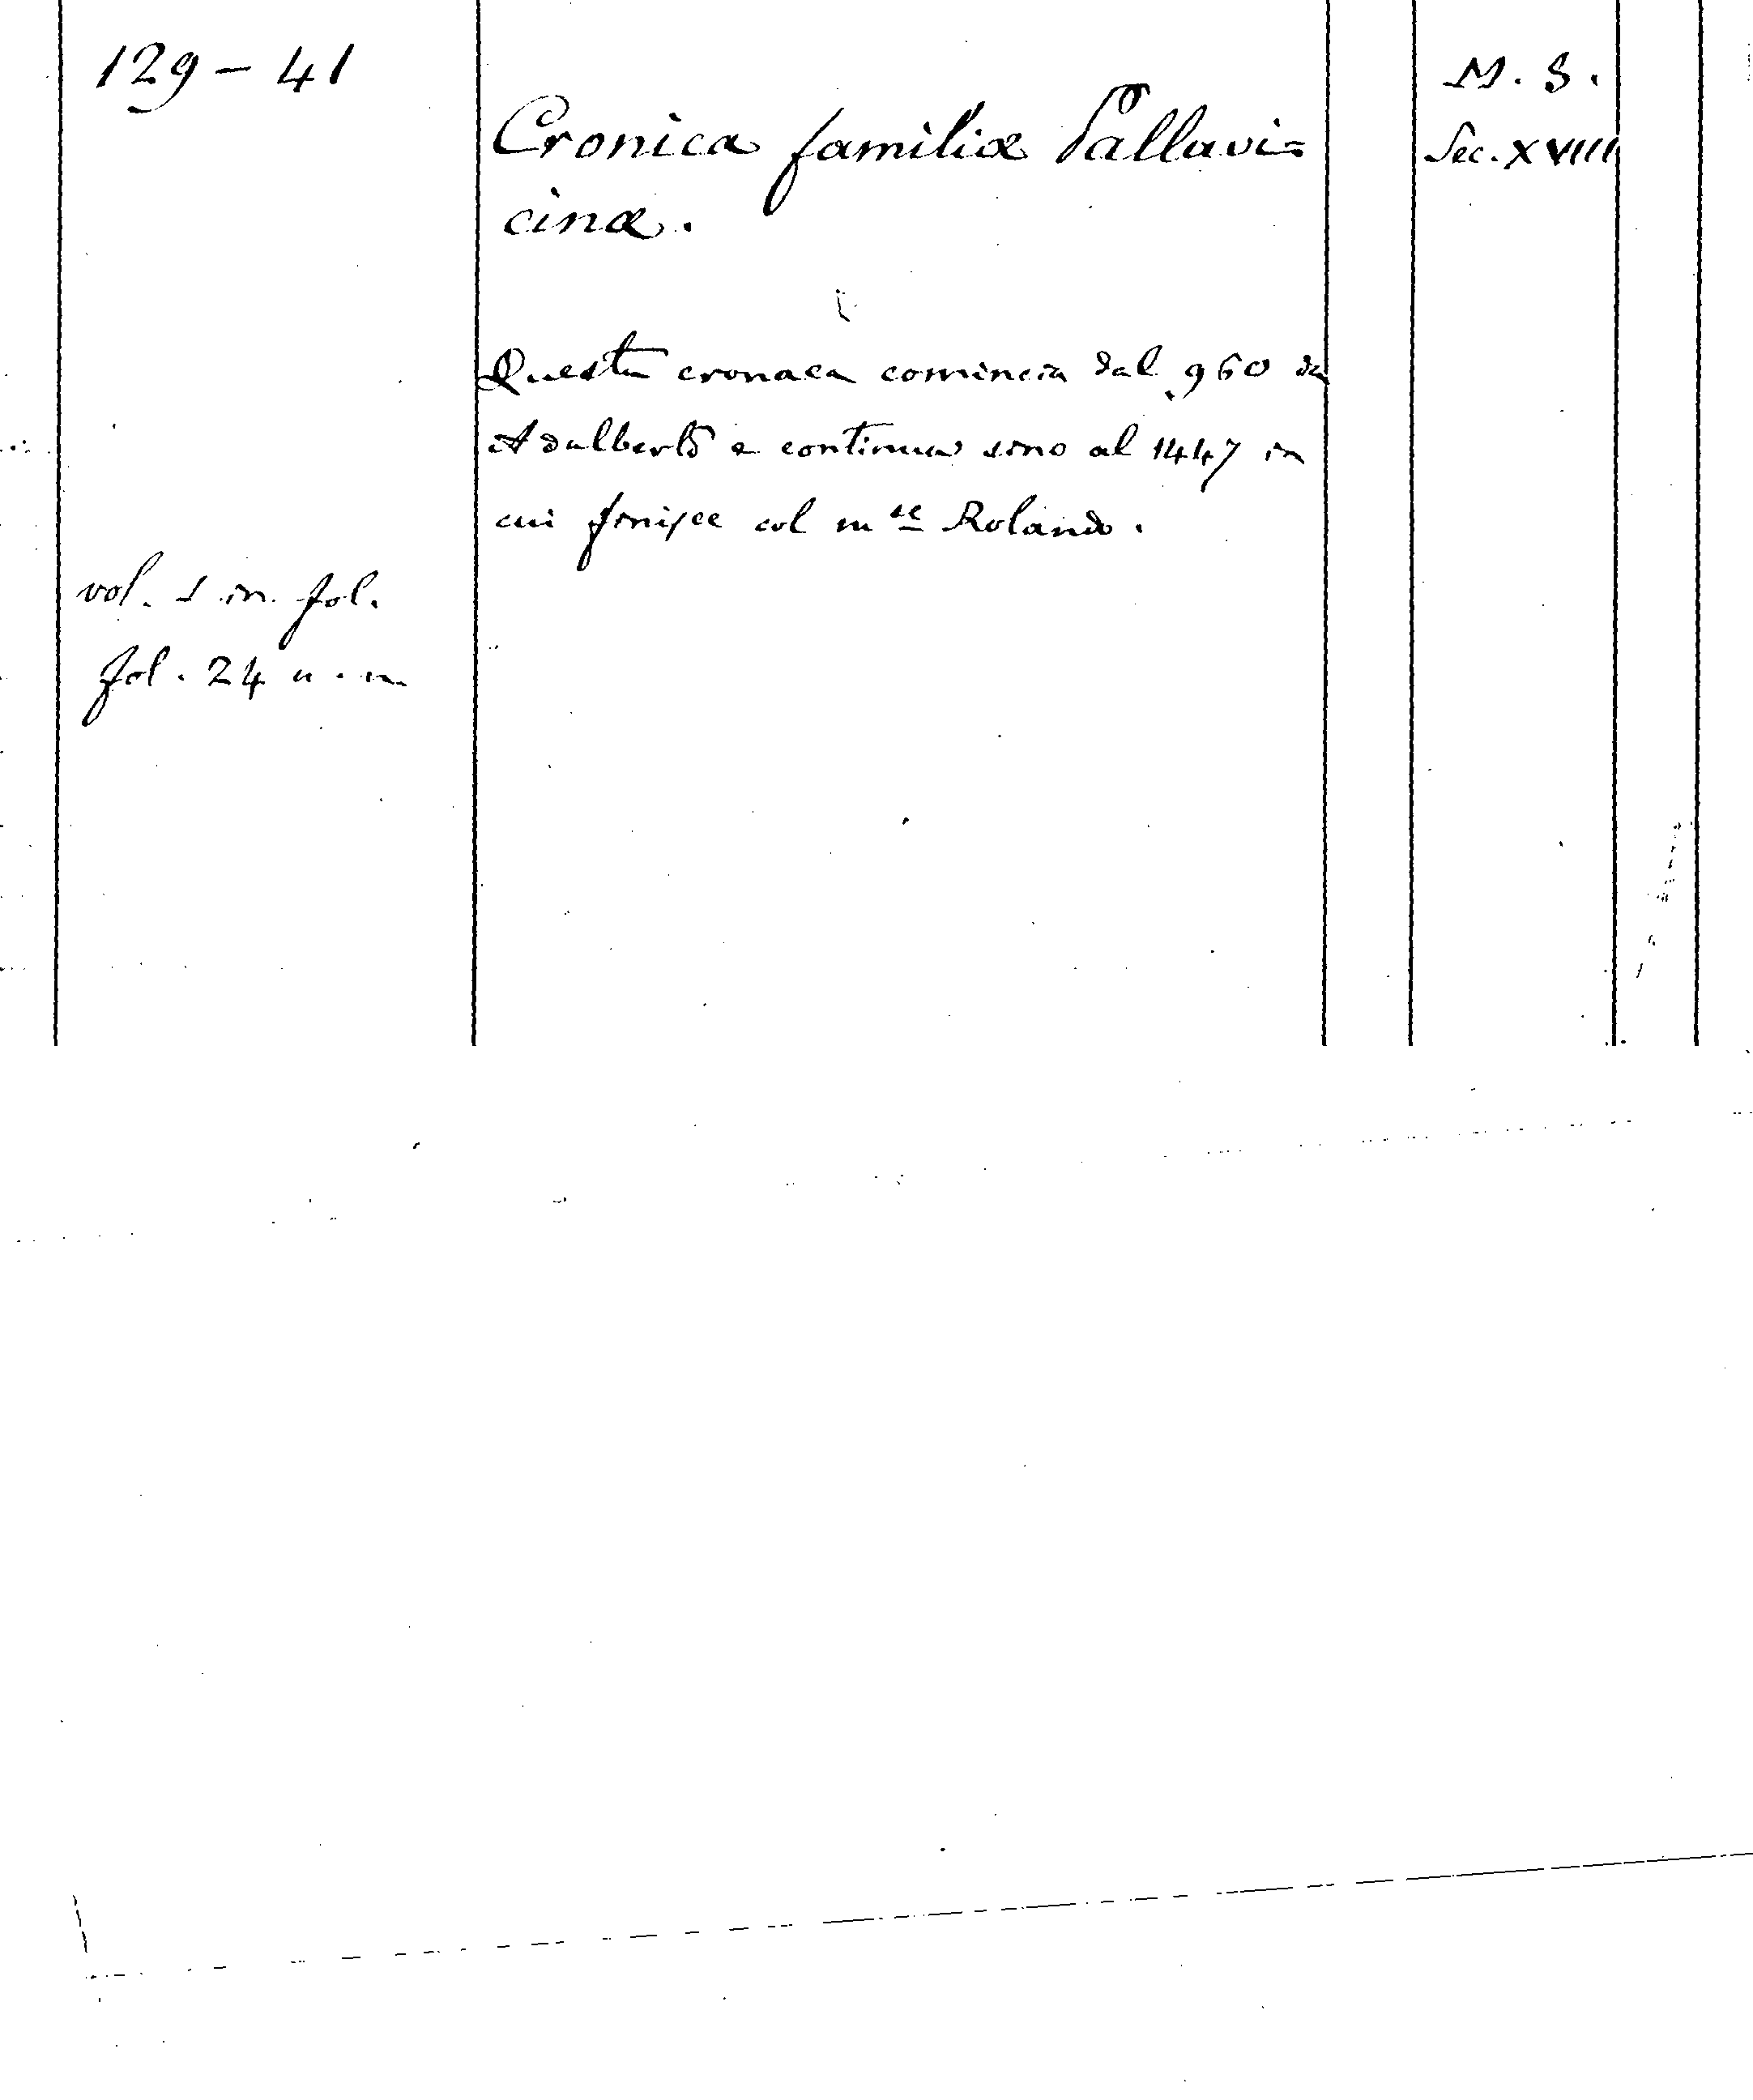 129 – 41
Cronica familiæ Pallavi=
cinæ.
M. S.
Sec. XVIII
Questa cronaca comincia dal 960 da
Adalberto e continua sino al 1447 in
cui finisce col m.se Rolando.
vol. 1 in fol.
fol. 24 n. n.